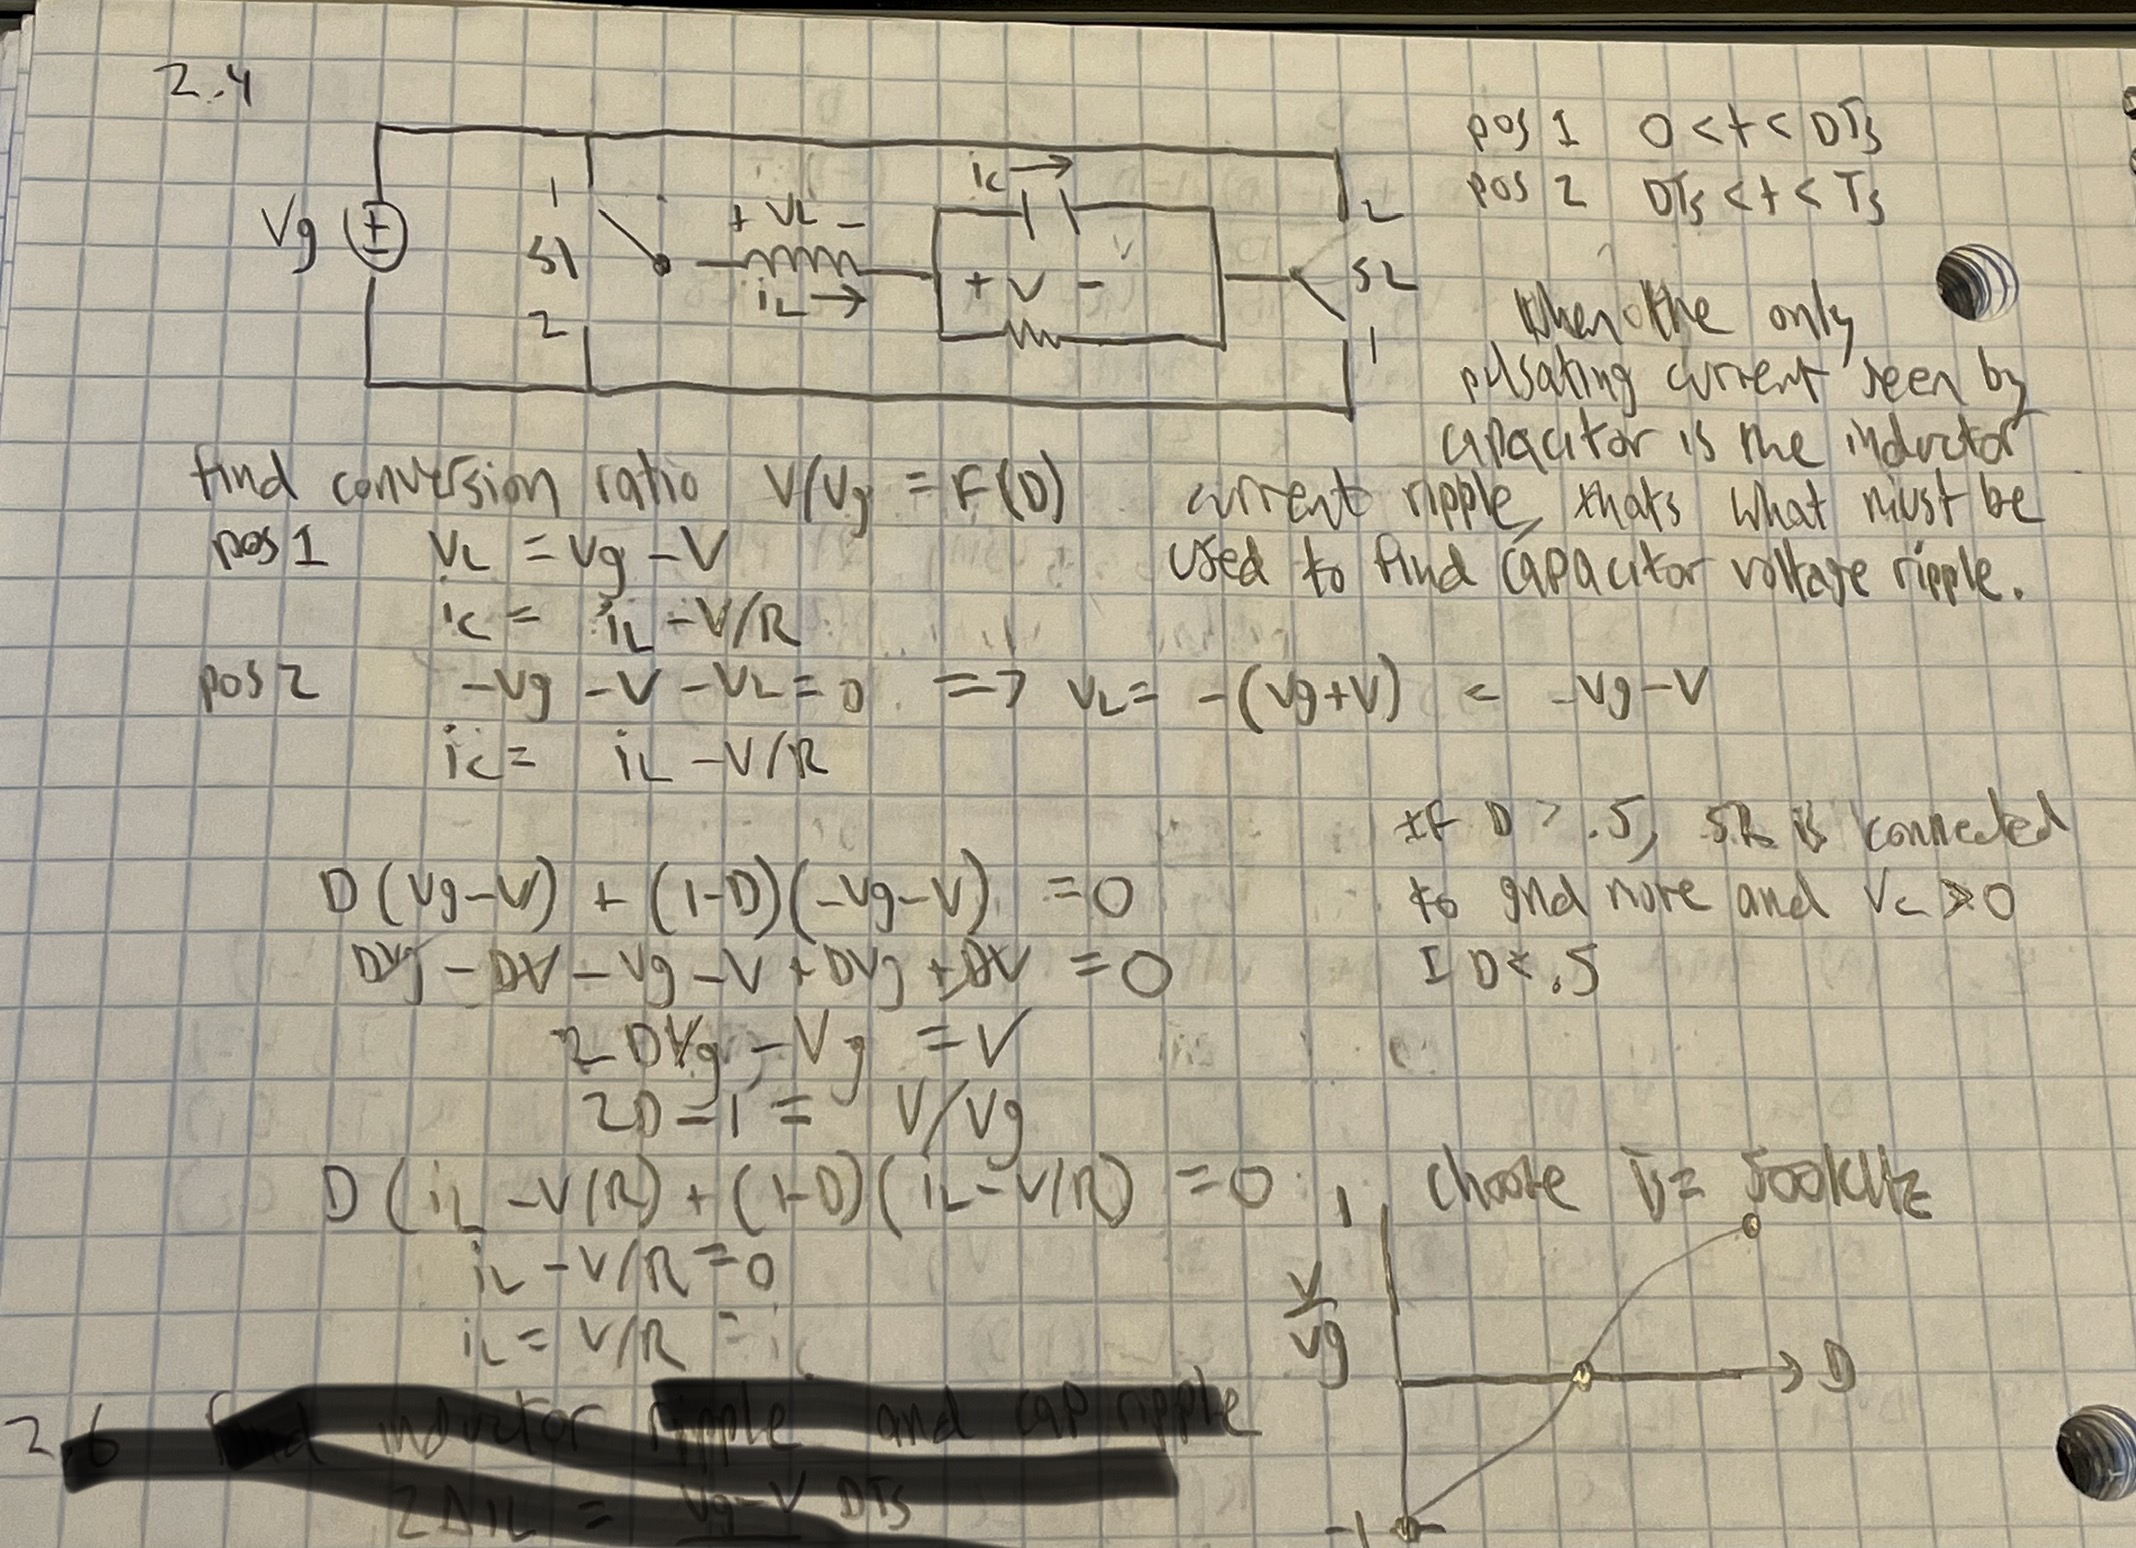 2.4
pos 1 0 < t < DTs
pos 2 DTs < t < Ts
Vg
1
S1
2
+ VL -
iL →
ic →
+ V -
2
S2
1
When the only
pulsating current seen by
capacitor is the inductor
current ripple, thats what must be
used to find capacitor voltage ripple.
find conversion ratio V/Vg = F(D)
pos 1 VL = Vg - V
ic = iL - V/R
pos 2 -Vg - V - VL = 0 => VL = -(Vg+V) = -Vg-V
ic = iL - V/R
IF D > .5, is connected
to gnd more and Vc > 0
I D < .5
D(Vg-V) + (1-D)(-Vg-V) = 0
DVg - DV - Vg - V + DVg + DV = 0
2DVg - Vg = V
2D-1 = V/Vg
D(iL - V/R) + (1-D)(iL - V/R) = 0
iL - V/R = 0
iL = V/R =
choose = 500kHz
1
V/Vg
→ D
-1
2.6 inductor ripple and cap ripple
2ΔiL = Vg-V DTs